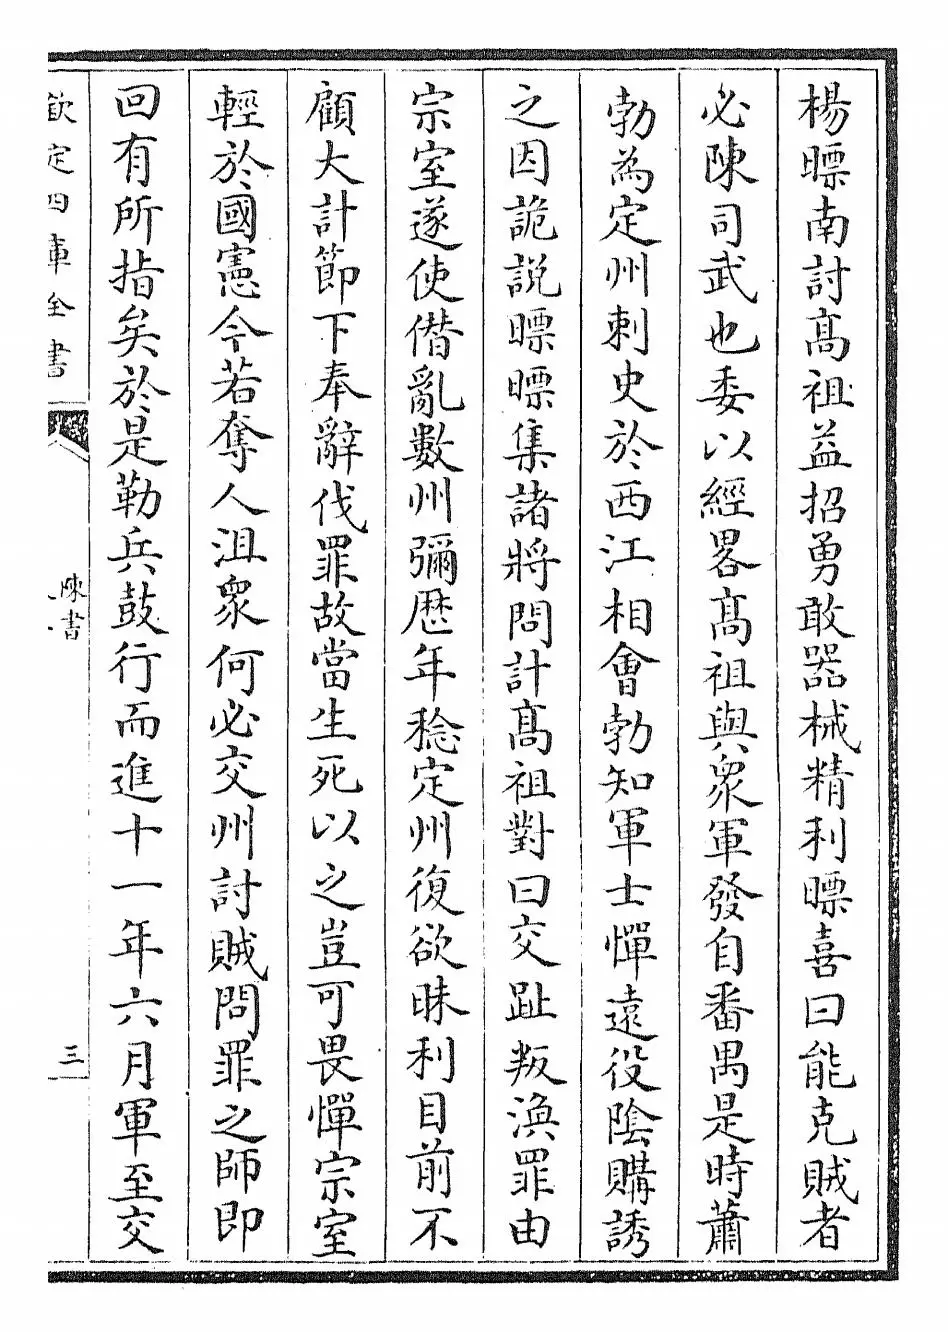 楊㬓南討髙祖益招勇敢器械精利㬓喜曰能克賊者
必陳司武也委以經畧髙祖與衆軍發自番禺是時蕭
勃為定州刺史於西江相會勃知軍士憚遠役隂購誘
之因詭説㬓㬓集諸將問計髙祖對曰交趾叛渙罪由
宗室遂使僭亂數州彌歴年稔定州復欲昧利目前不
顧大計節下奉辭伐罪故當生死以之豈可畏憚宗室
輕於國憲今若奪人沮衆何必交州討賊問罪之師即
回有所指矣於是勒兵鼓行而進十一年六月軍至交
欽定四庫全書
陳書
三